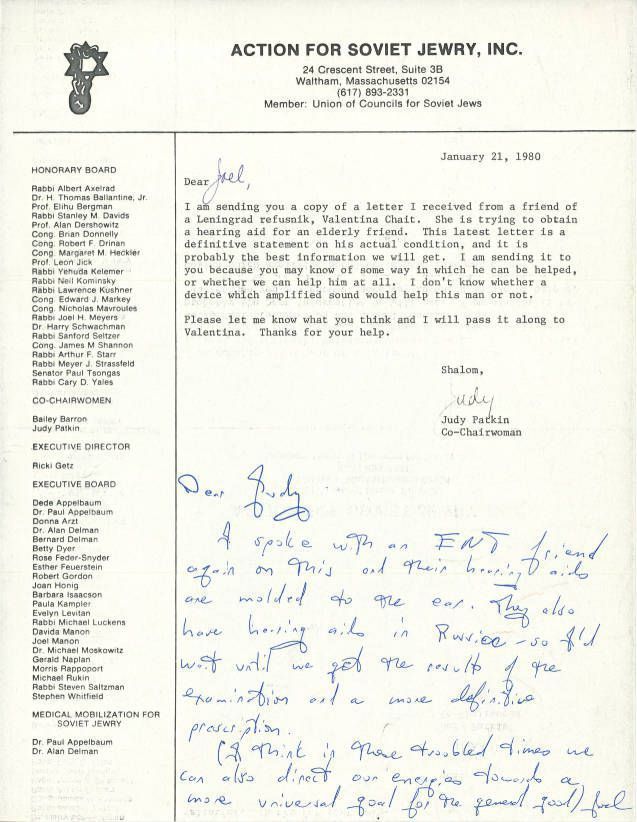 ACTION FOR SOVIET JEWRY, INC.
24 Crescent Street, Suite 3B
Waltham, Massachusetts 02154
(617) 893-2331
Member: Union of Councils for Soviet Jews
HONORARY BOARD
Rabbi Albert Axelrad
Dr. H. Thomas Ballantine, Jr.
Prof. Elihu Bergman
Rabbi Stanley M. Davids
Prof. Alan Dershowitz
Cong. Brian Donnelly
Cong. Robert F. Drinan
Cong. Margaret M. Heckler
Prof. Leon Jick
Rabbi Yehuda Kelemer
Rabbi Neil Kominsky
Rabbi Lawrence Kushner
Cong. Edward J. Markey
Cong. Nicholas Mavroules
Rabbi Joel H. Meyers
Dr. Harry Schwachman
Rabbi Sanford Seltzer
Cong. James M Shannon
Rabbi Arthur F. Starr
Rabbi Meyer J. Strassfeld
Senator Paul Tsongas
Rabbi Cary D. Yales
CO-CHAIRWOMEN
Bailey Barron
Judy Patkin
EXECUTIVE DIRECTOR
Ricki Getz
EXECUTIVE BOARD
Dede Appelbaum
Dr. Paul Appelbaum
Donna Arzt
Dr. Alan Delman
Bernard Delman
Betty Dyer
Rose Feder-Snyder
Esther Feuerstein
Robert Gordon
Joan Honig
Barbara Isaacson
Paula Kampler
Evelyn Levitan
Rabbi Michael Luckens
Davida Manon
Joel Manon
Dr. Michael Moskowitz
Gerald Naplan
Morris Rappoport
Michael Rukin
Rabbi Steven Saltzman
Stephen Whitfield
MEDICAL MOBILIZATION FOR
SOVIET JEWRY
Dr. Paul Appelbaum
Dr. Alan Delman
January 21, 1980
Dear Joel,
I am sending you a copy of a letter I received from a friend of
a Leningrad refusnik, Valentina Chait. She is trying to obtain
a hearing aid for an elderly friend. This latest letter is a
definitive statement on his actual condition, and it is
probably the best information we will get. I am sending it to
you because you may know of some way in which he can be helped,
or whether we can help him at all. I don't know whether a
device which amplified sound would help this man or not.
Please let me know what you think and I will pass it along to
Valentina. Thanks for your help.
Shalom,
Judy
Judy Patkin
Co-Chairwoman
Dear Judy
I spoke with an ENT friend
again on this and their hearing aids
are molded to the ear. They also
have hearing aids in Russia - so I'd
wait until we get the results of the
examination and a more definitive
prescription.
(I think in these troubled times we
can also direct our energies towards a
more universal goal for the general good) Joel